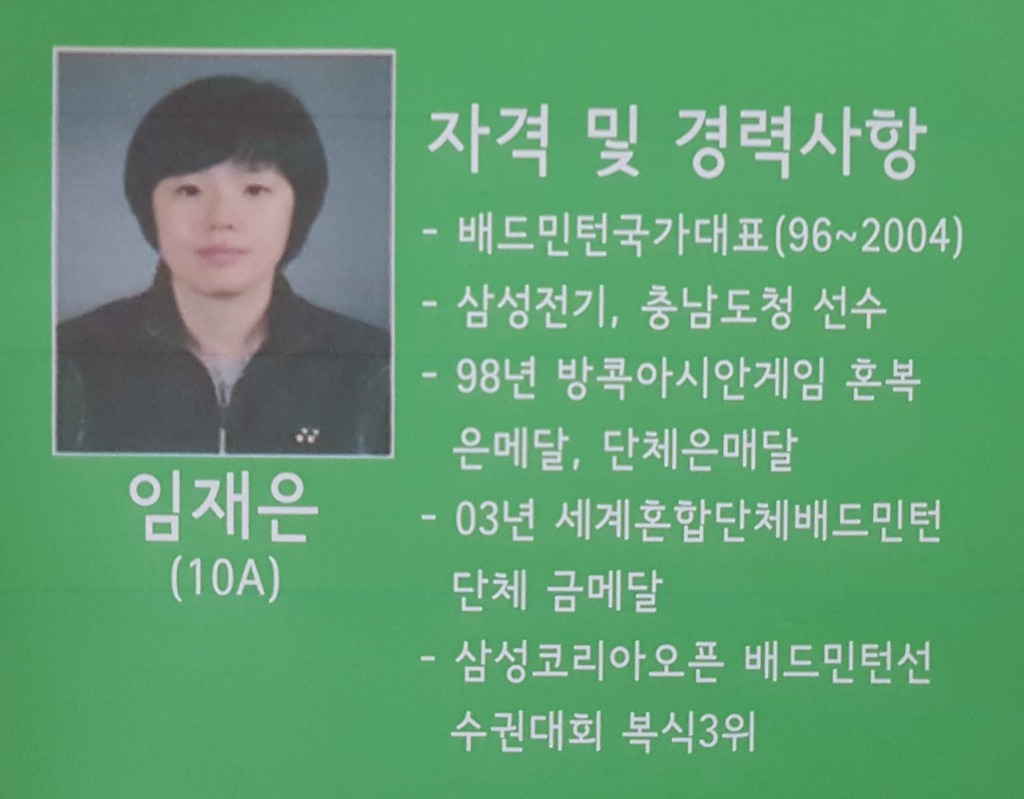 자격 및 경력사항
- 배드민턴국가대표(96~2004)
- 삼성전기, 충남도청 선수
- 98년 방콕아시안게임 혼복
은메달, 단체은매달
- 03년 세계혼합단체배드민턴
단체 금메달
- 삼성코리아오픈 배드민턴선
수권대회 복식3위
임재은
(10A)